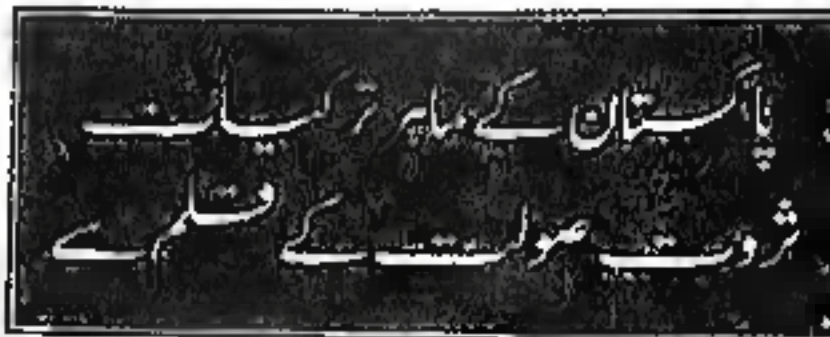 پاکستان کے ماہر ترکیات
ثروت صولت کے قلم سے